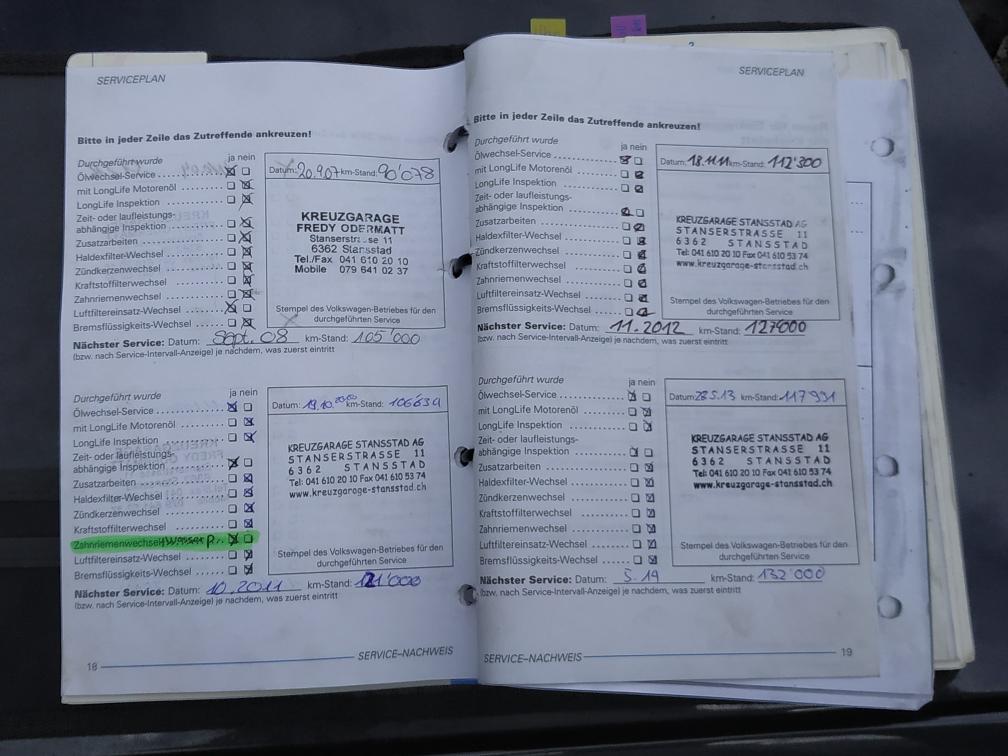 SERVICEPLAN
Bitte in jeder Zeile das Zutreffende ankreuzen!
Durchgeführt wurde
ja nein
Ölwechsel-Service
mit LongLife Motorenöl
LongLife Inspektion
Zeit- oder laufleistungs-
abhängige Inspektion
Zusatzarbeiten
Haldexfilter-Wechsel
Zündkerzenwechsel
Kraftstoffilterwechsel
Zahnriemenwechsel
Luftfiltereinsatz-Wechsel
Bremsflüssigkeits-Wechsel
Datum: 20.9.07 km-Stand: 90'078
KREUZGARAGE
FREDY ODERMATT
Stanserstrasse 11
6362 Stansstad
Tel./Fax 041 610 20 10
Mobile 079 641 02 37
Stempel des Volkswagen-Betriebes für den
durchgeführten Service
Nächster Service: Datum: Sept. 08 km-Stand: 105'000
(bzw. nach Service-Intervall-Anzeige) je nachdem, was zuerst eintritt
Durchgeführt wurde
ja nein
Ölwechsel-Service
mit LongLife Motorenöl
LongLife Inspektion
Zeit- oder laufleistungs-
abhängige Inspektion
Zusatzarbeiten
Haldexfilter-Wechsel
Zündkerzenwechsel
Kraftstoffilterwechsel
Zahnriemenwechsel + Wasser p.
Luftfiltereinsatz-Wechsel
Bremsflüssigkeits-Wechsel
Datum: 19.10. km-Stand: 106634
KREUZGARAGE STANSSTAD AG
STANSERSTRASSE 11
6362 STANSSTAD
Tel: 041 610 20 10 Fax 041 610 53 74
www.kreuzgarage-stansstad.ch
Stempel des Volkswagen-Betriebes für den
durchgeführten Service
Nächster Service: Datum: 10.2011 km-Stand: 121'000
(bzw. nach Service-Intervall-Anzeige) je nachdem, was zuerst eintritt
18
SERVICE–NACHWEIS
SERVICEPLAN
Bitte in jeder Zeile das Zutreffende ankreuzen!
Durchgeführt wurde
ja nein
Ölwechsel-Service
mit LongLife Motorenöl
LongLife Inspektion
Zeit- oder laufleistungs-
abhängige Inspektion
Zusatzarbeiten
Haldexfilter-Wechsel
Zündkerzenwechsel
Kraftstoffilterwechsel
Zahnriemenwechsel
Luftfiltereinsatz-Wechsel
Bremsflüssigkeits-Wechsel
Datum: 18.11.11 km-Stand: 112'300
KREUZGARAGE STANSSTAD AG
STANSERSTRASSE 11
6362 STANSSTAD
Tel: 041 610 20 10 Fax 041 610 53 74
www.kreuzgarage-stansstad.ch
Stempel des Volkswagen-Betriebes für den
durchgeführten Service
Nächster Service: Datum: 11.2012 km-Stand: 127000
(bzw. nach Service-Intervall-Anzeige) je nachdem, was zuerst eintritt
Durchgeführt wurde
ja nein
Ölwechsel-Service
mit LongLife Motorenöl
LongLife Inspektion
Zeit- oder laufleistungs-
abhängige Inspektion
Zusatzarbeiten
Haldexfilter-Wechsel
Zündkerzenwechsel
Kraftstoffilterwechsel
Zahnriemenwechsel
Luftfiltereinsatz-Wechsel
Bremsflüssigkeits-Wechsel
Datum: 28.5.13 km-Stand: 117991
KREUZGARAGE STANSSTAD AG
STANSERSTRASSE 11
6362 STANSSTAD
Tel: 041 610 20 10 Fax 041 610 53 74
www.kreuzgarage-stansstad.ch
Stempel des Volkswagen-Betriebes für den
durchgeführten Service
Nächster Service: Datum: 5.14 km-Stand: 132'000
(bzw. nach Service-Intervall-Anzeige) je nachdem, was zuerst eintritt
SERVICE–NACHWEIS
19